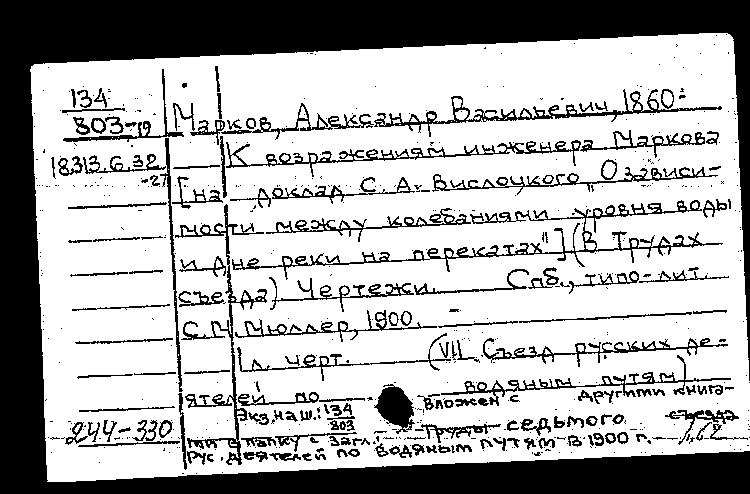 134
803-19
Марков, Александр Васильевич, 1860-
18.313.6.32
-27
К возражениям инженера Маркова
[на доклад С. А. Вислоцкого „О зависи-
мости между колебаниями уровня воды
и дне реки на перекатах"] (В Трудах
съезда) Чертежи. Спб., типо-лит.
С.М. Мюллер, 1900. -
1 л. черт. (VII Съезд русских де-
ятелей по водяным путям)
Экз. на ш.: 134
803
вложен с другими книга-
244-330
ми в папку с загл.: Труды седьмого съезда
рус. деятелей по водяным путям в 1900 г.